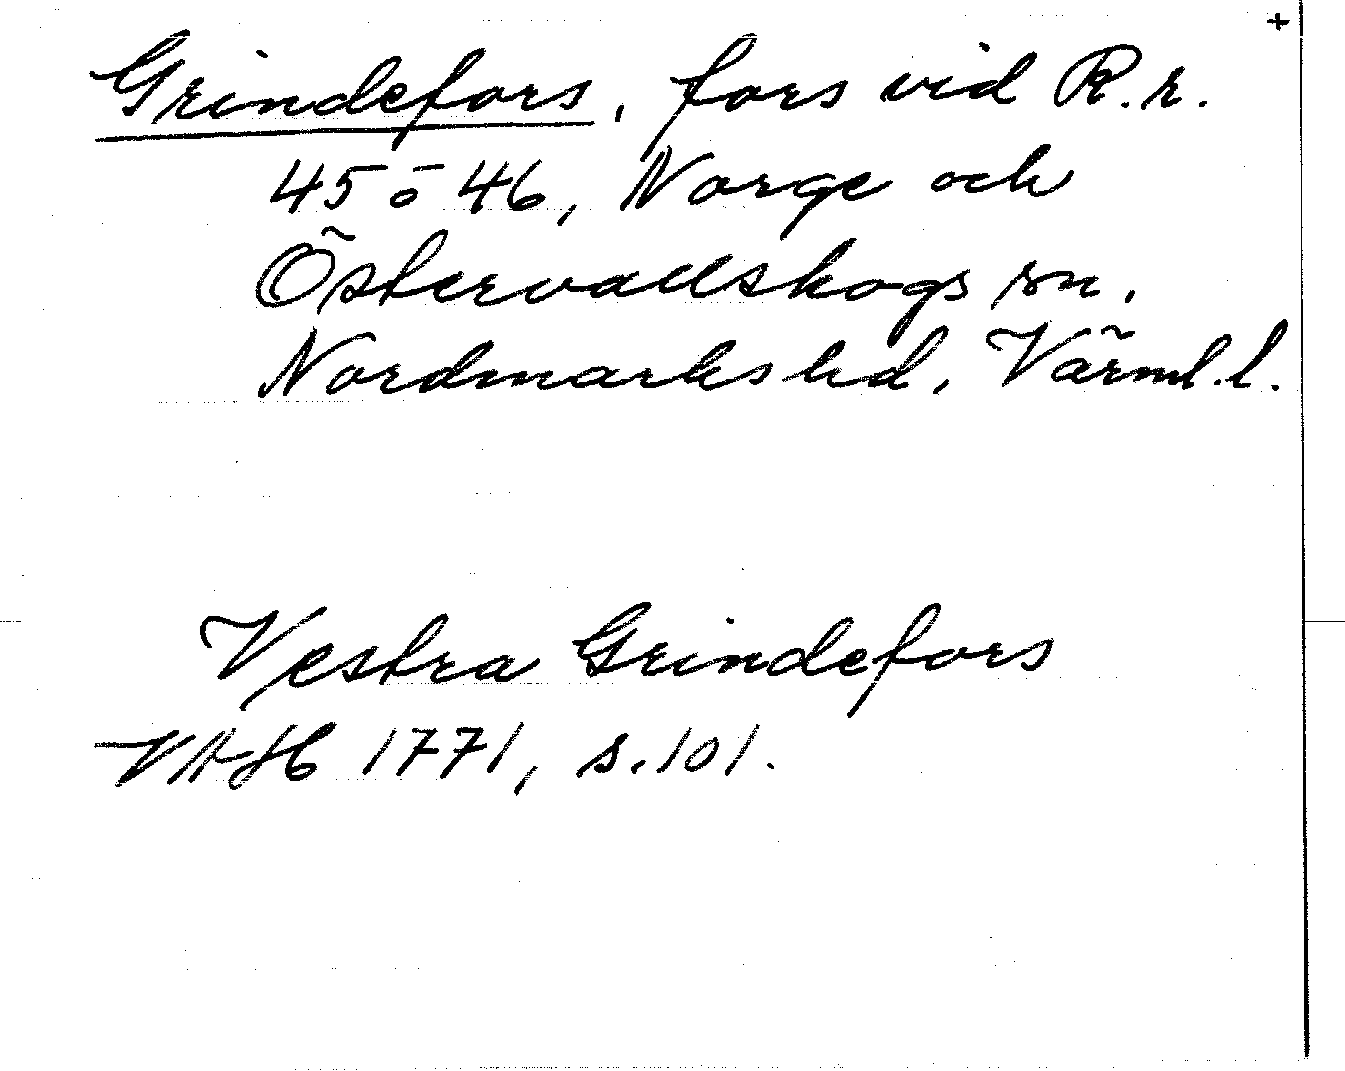 +
Grindefors, fors vid R.r.
45 ō 46, Norge och
Östervallskogs sn.
Nordmarks hd, Värml.l.
Vestra Grindefors
VAH 1771, s.101.